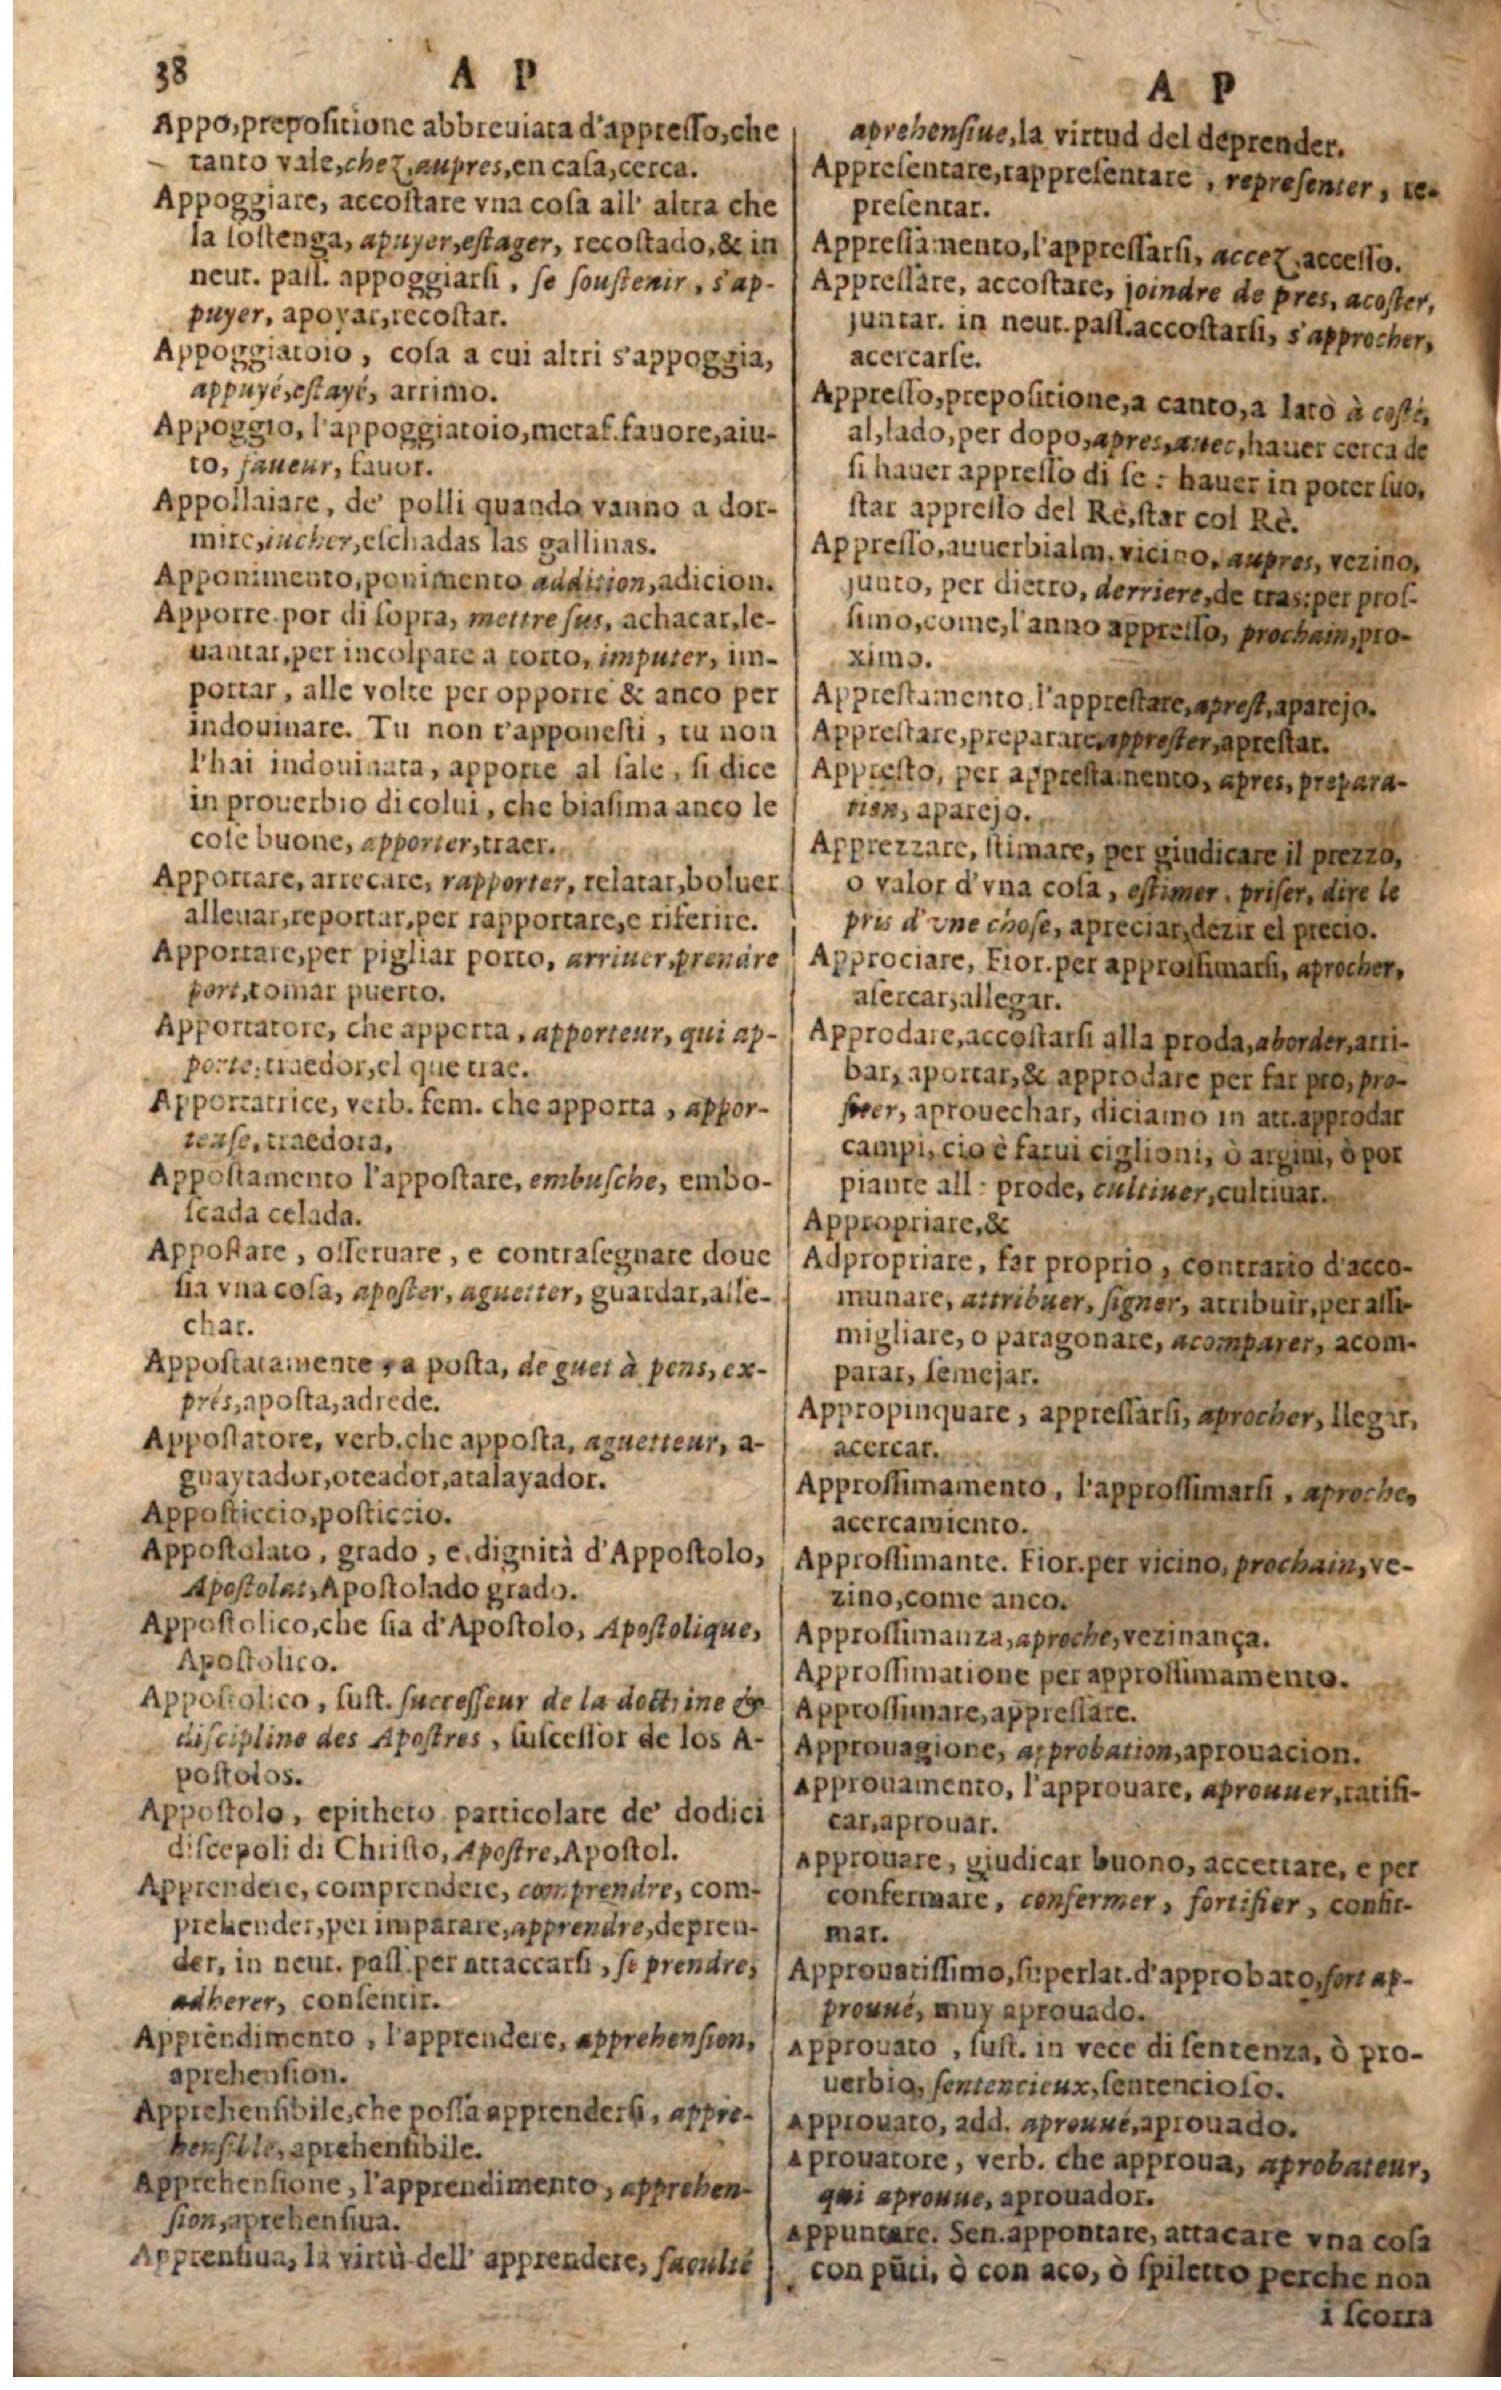 38
A P
Appo,prepositione abbreuiata d'appresso,che
tanto vale,chez,aupres,en casa,cerca.
Appoggiare, accostare vna cosa all' altra che
la sostenga, apuyer,estager, recostado,& in
neut. pass. appoggiarsi, se soustenir, s'ap-
puyer, apoyar,recostar.
Appoggiatoio, cosa a cui altri s'appoggia,
appuyé,estayé, arrimo.
Appoggio, l'appoggiatoio,metaf.fauore,aiu-
to, faueur, fauor.
Appollaiare, de' polli quando vanno a dor-
mire,iucher,eschadas las gallinas.
Apponimento,ponimento addition,adicion.
Apporre.por di sopra, mettre sus, achacar,le-
uantar,per incolpare a torto, imputer, im-
portar, alle volte per opporre & anco per
indouinare. Tu non t'apponesti, tu non
l'hai indouinata, apporre al sale, si dice
in prouerbio di colui, che biasima anco le
cose buone, apporter,traer.
Apportare, arrecare, rapporter, relatar,boluer
alleuar,reportar,per rapportare,e riferire.
Apportare,per pigliar porto, arriuer,prendre
port,tomar puerto.
Apportatore, che apporta, apporteur, qui ap-
porte,traedor,el que trae.
Apportatrice, verb. fem. che apporta, appor-
teuse,traedora,
Appostamento l'appostare, embusche, embo-
scada celada.
Appostare, osseruare, e contrasegnare doue
sia vna cosa, aposter, aguetter, guardar,asse-
char.
Appostatamente, a posta, de guet à pens, ex-
prés,aposta,adrede.
Appostatore, verb.che apposta, aguetteur, a-
guaytador,oteador,atalayador.
Apposticcio,posticcio.
Appostolato, grado, e dignità d'Appostolo,
Apostolat,Apostolado grado.
Appostolico,che sia d'Apostolo, Apostolique,
Apostolico.
Appostolico, sust. successeur de la doctrine &
discipline des Apostres, suscessor de los A-
postolos.
Appostolo, epitheto particolare de' dodici
discepoli di Christo, Apostre,Apostol.
Apprendere, comprendere, comprendre, com-
prehender,per imparare,apprendre,depren-
der, in neut. pass.per attaccarsi, se prendre,
adherer, consentir.
Apprèndimento, l'apprendere, apprehension,
aprehension.
Apprehensibile,che possa apprendersi, appre-
hensible, aprehensibile.
Apprehensione, l'apprendimento, apprehen-
sion,aprehensiua.
Apprensiua, la virtù dell' apprendere, faculté
A P
aprehensiue,la virtud del deprender.
Appresentare,rappresentare, representer, re-
presentar.
Appressamento,l'appressarsi, accez,accesso.
Appressare, accostare, joindre de pres, acoster,
juntar. in neut.pass.accostarsi, s'approcher,
acercarse.
Appresso,prepositione,a canto,a lato à costé,
al,lado,per dopo,apres,auec,hauer cerca de
si hauer appresso di se: hauer in poter suo,
star appresso del Rè,star col Rè.
Appresso,auuerbialm.vicino, aupres, vezino,
junto, per dietro, derriere,de tras:per pros-
simo,come,l'anno appresso, prochain,pro-
ximo.
Apprestamento,l'apprestare,aprest,aparejo.
Apprestare,preparare,apprester,aprestar.
Appresto, per apprestamento, apres, prepara-
tion, aparejo.
Apprezzare, stimare, per giudicare il prezzo,
o valor d'vna cosa, estimer, priser, dire le
pris d'vne chose, apreciar,dezir el precio.
Approciare, Fior.per approssimarsi, aprocher,
asercar,allegar.
Approdare,accostarsi alla proda,aborder,arri-
bar, aportar,& approdare per far pro, pro-
fiter, aprouechar, diciamo in att.approdar
campi, cio è farui ciglioni, ò argini, ò por
piante all: prode, cultiuer,cultiuar.
Appropriare,&
Adpropriare, far proprio, contrario d'acco-
munare, attribuer, signer, atribuir,per assi-
migliare, o paragonare, acomparer, acom-
parar, semejar.
Appropinquare, appressarsi, aprocher, llegar,
acercar.
Approssimamento, l'approssimarsi, aproche,
acercamiento.
Approssimante. Fior.per vicino,prochain,ve-
zino,come anco.
Approssimanza,aproche,vezinança.
Approssimatione per approssimamento.
Approssimare,appressare.
Approuagione, approbation,aprouacion.
Approuamento, l'approuare, aprouuer,ratifi-
car,aprouar.
Approuare, giudicar buono, accettare, e per
confermare, confermer, fortifier, confir-
mar.
Approuatissimo,superlat.d'approbato,fort ap-
prouué, muy aprouado.
Approuato, sust. in vece di sentenza, ò pro-
uerbio, sentencieux,sentencioso.
Approuato, add. aprouué,aprouado.
Aprouatore, verb. che approua, aprobateur,
qui aprouue, aprouador.
Appuntare. Sen.appontare, attacare vna cosa
con pũti, ò con aco, ò spiletto perche non
i scorra